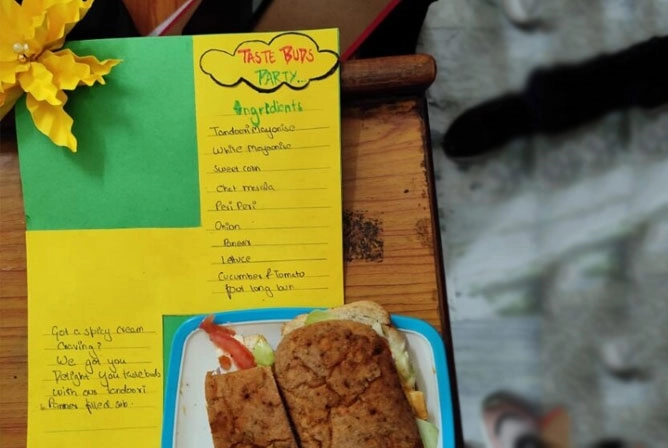 TASTE BUDS
PARTY...
Ingridients
Tandoori Mayonise
White Mayonise
Sweet corn
Chat masala
Peri Peri
Onion
Paneer
Letuce
Cucumber & Tomato
foot long bun
Got a spicy cream
Craving?
We got you
Delight you tastebuds
With our tandoori
Panner filled sub.